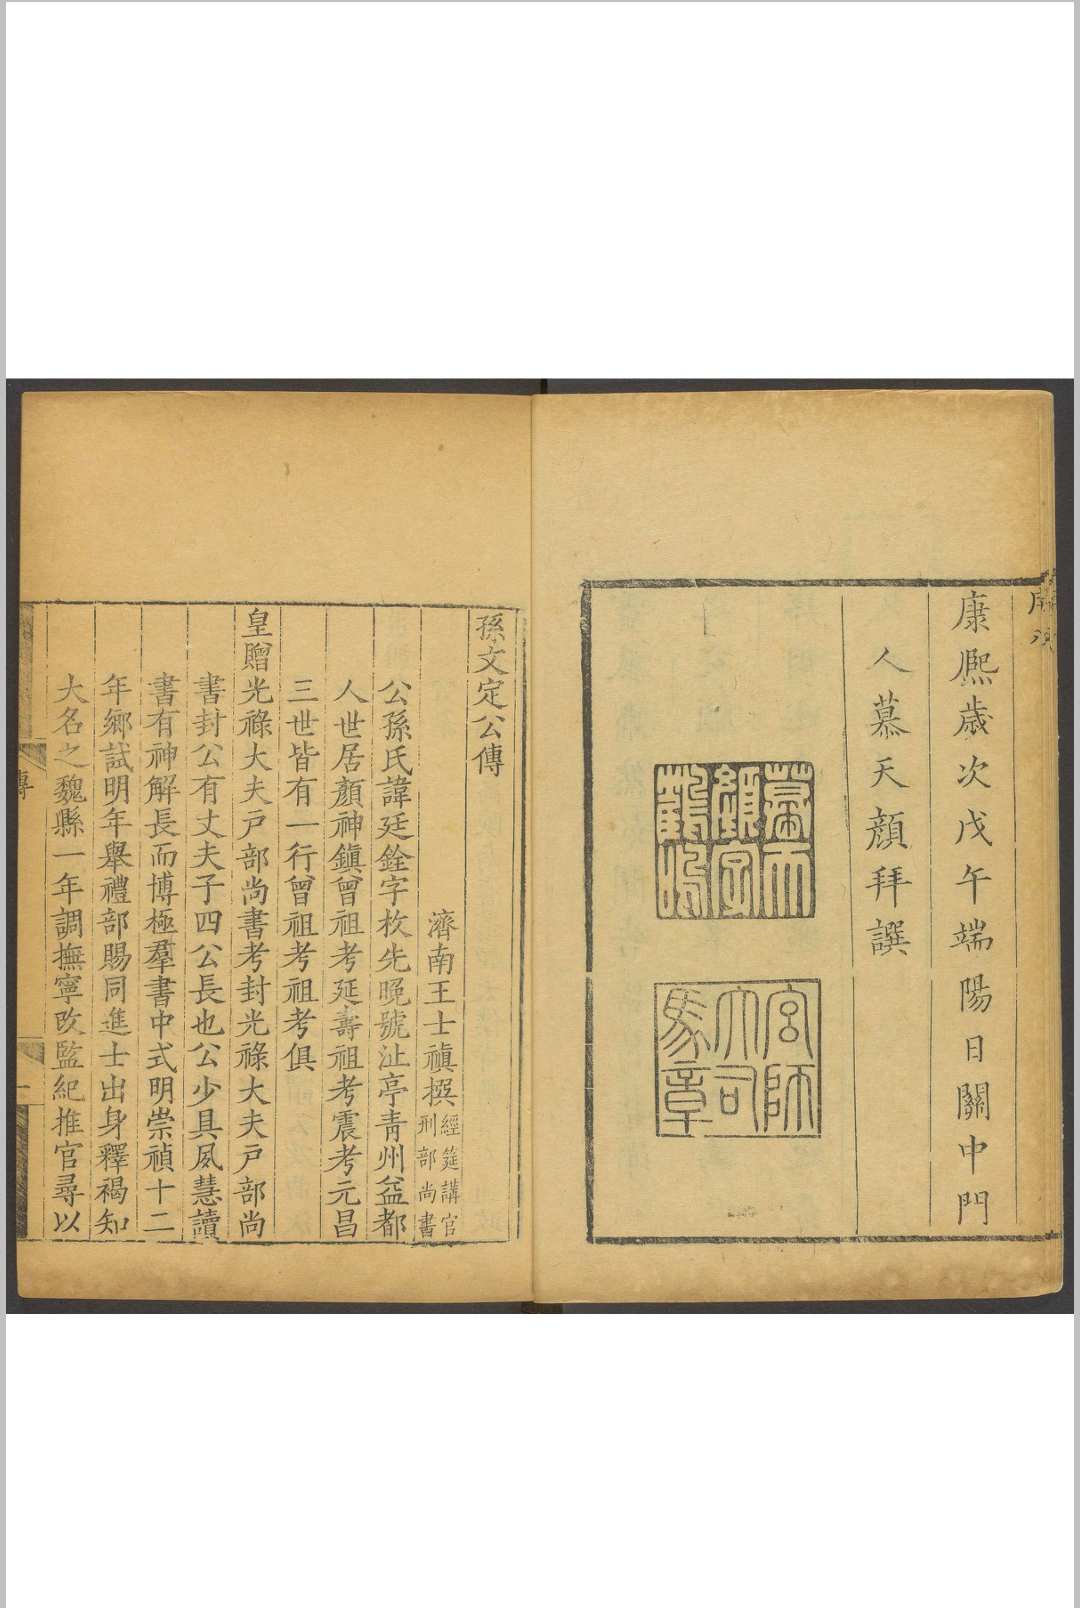 康熈歲次戊午端陽日關中門
人慕天顏拜譔
慕天
顏字
鶴鳴
宮師
大司
馬章
孫文定公傳
濟南王士禛撰 經筵講官 刑部尚書
公孫氏諱廷銓字枚先晚號沚亭青州益都
人世居顏神鎮曾祖考延壽祖考震考元昌
三世皆有一行曾祖考祖考俱
皇贈光祿大夫戸部尚書考封光祿大夫戸部尚
書封公有丈夫子四公長也公少具夙慧讀
書有神解長而博極羣書中式明崇禎十二
年鄉試明年舉禮部賜同進士出身釋褐知
大名之魏縣一年調撫寧改監紀推官尋以
傳
一